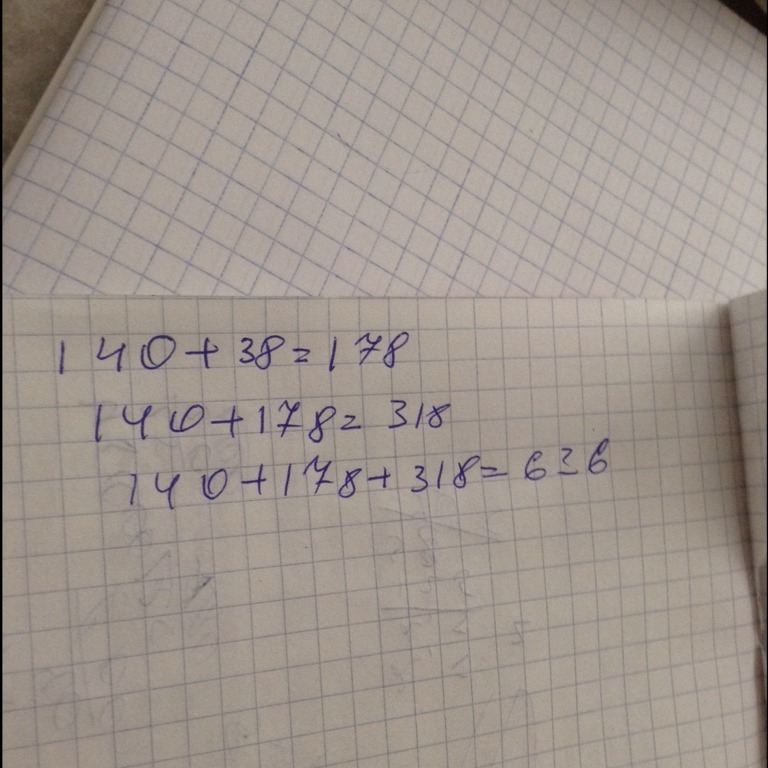 140+38=178
140+178=318
140+178+318=636